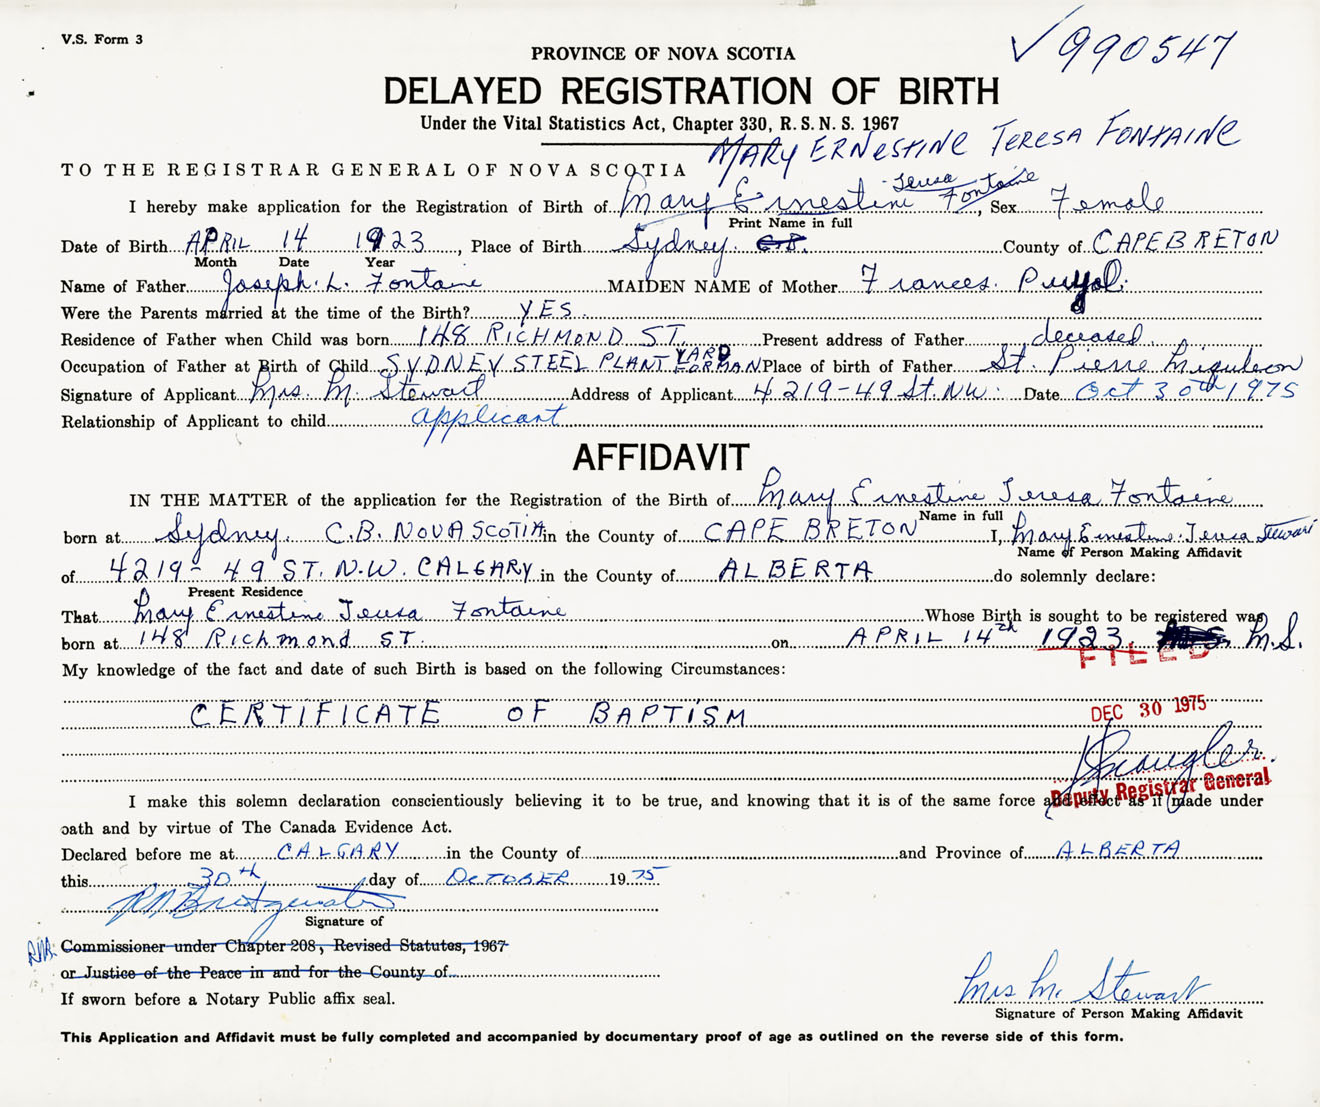 V.S. Form 3
✓990547
PROVINCE OF NOVA SCOTIA
DELAYED REGISTRATION OF BIRTH
Under the Vital Statistics Act, Chapter 330, R.S.N.S. 1967
MARY ERNESTINE TERESA FONTAINE
TO THE REGISTRAR GENERAL OF NOVA SCOTIA
I hereby make application for the Registration of Birth of Mary Ernestine Teresa Fontaine, Sex Female
Print Name in full
Date of Birth APRIL 14 1923, Place of Birth Sydney C.B. County of CAPE BRETON
Month Date Year
Name of Father Joseph. L. Fontaine MAIDEN NAME of Mother Frances. Pujol.
Were the Parents married at the time of the Birth? YES.
Residence of Father when Child was born 148 RICHMOND ST. Present address of Father deceased.
Occupation of Father at Birth of Child SYDNEY STEEL PLANT YARD FORMAN Place of birth of Father St. Pierre Miquleon
Signature of Applicant Mrs. M. Stewart Address of Applicant 4219-49 St. NW. Date Oct 30th 1975
Relationship of Applicant to child applicant
AFFIDAVIT
IN THE MATTER of the application for the Registration of the Birth of Mary Ernestine Teresa Fontaine
Name in full
born at Sydney. C.B. NOVA SCOTIA in the County of CAPE BRETON I, Mary Ernestine. Teresa Stewart
Name of Person Making Affidavit
of 4219-49 ST. N.W. CALGARY in the County of ALBERTA do solemnly declare:
Present Residence
That Mary Ernestine Teresa Fontaine Whose Birth is sought to be registered was
born at 148 Richmond ST. on APRIL 14th 1923. M.S.
FILED
My knowledge of the fact and date of such Birth is based on the following Circumstances:
CERTIFICATE OF BAPTISM
DEC 30 1975
Deputy Registrar General
I make this solemn declaration conscientiously believing it to be true, and knowing that it is of the same force and effect as if made under
oath and by virtue of The Canada Evidence Act.
Declared before me at CALGARY in the County of and Province of ALBERTA
this 30th day of OCTOBER 1975
Signature of
Commissioner under Chapter 208, Revised Statutes, 1967
or Justice of the Peace in and for the County of
If sworn before a Notary Public affix seal.
Mrs M. Stewart
Signature of Person Making Affidavit
This Application and Affidavit must be fully completed and accompanied by documentary proof of age as outlined on the reverse side of this form.